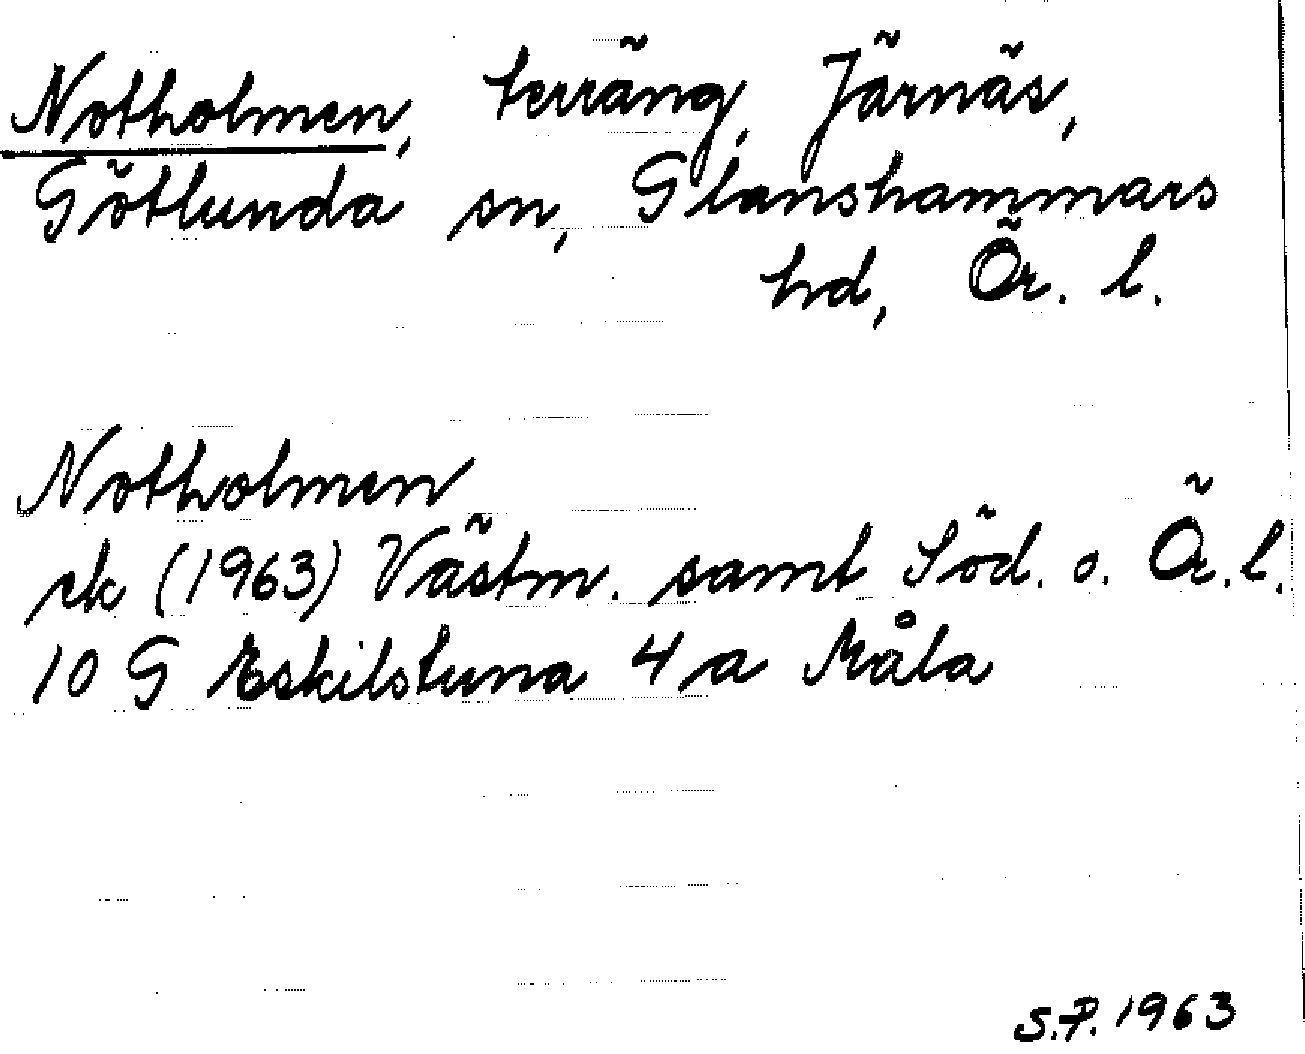 Notholmen, terräng, Järnäs,
Götlunda sn, Glanshammars
hd, Ör. l.
Notholmen
ek (1963) Västm. samt Söd. o. Ör. l.
10 G Eskilstuna 4 a Måla
S.P. 1963